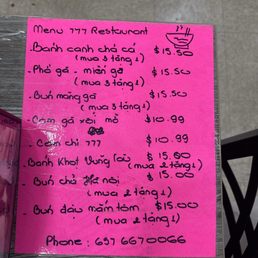 Menu 777 Restaurant
- Bánh canh chả cá $15.50
(mua 3 tặng 1)
- Phở gà - miến gà $15.50
(mua 3 tặng 1)
- Bún măng gà $15.50
(mua 3 tặng 1)
- Cơm gà xối mỡ $10.99
- Cơm chỉ 777 $10.99
- Bánh Khọt Vũng Tàu $15.00
(mua 2 tặng 1)
- Bún chả Hà nội $15.00
(mua 2 tặng 1)
- Bún đậu mắm tôm $15.00
(mua 2 tặng 1)
Phone: 657 6670066